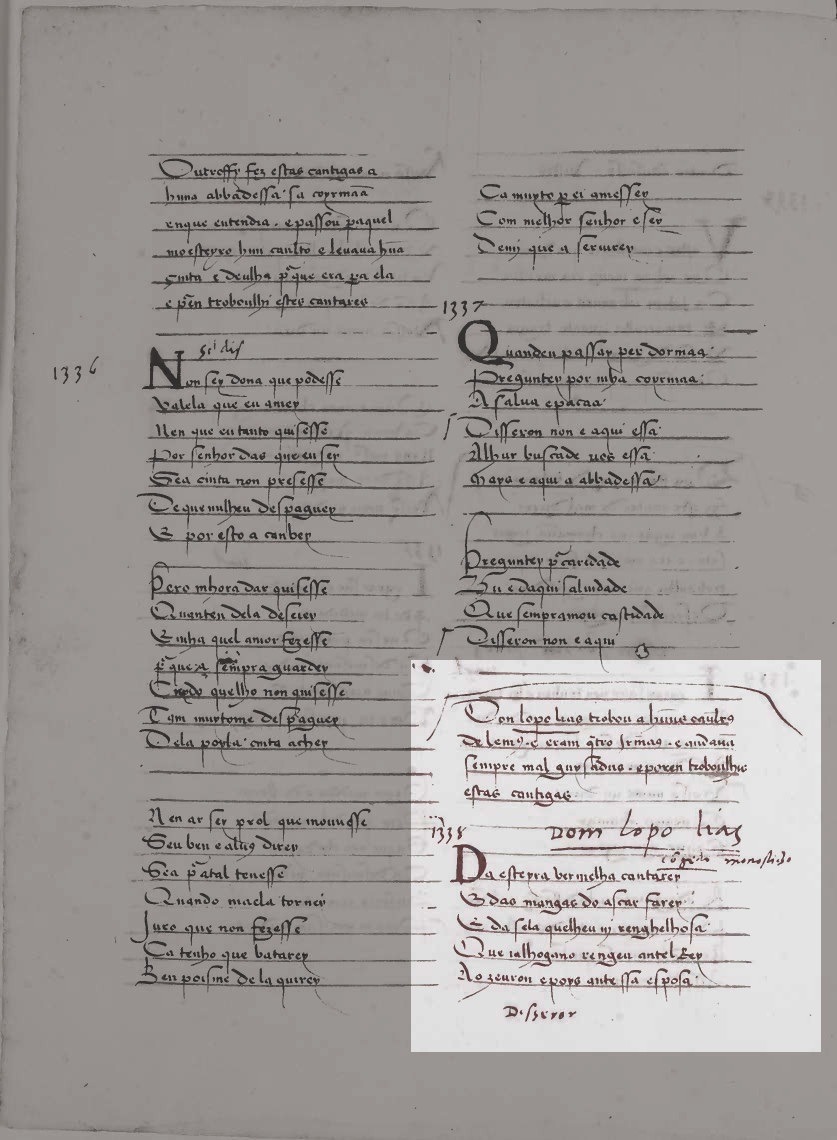 Outrossy fez estas cantigas a
huna abbadessa sa coyrmaã
enque entendia . e passou paquel
moesteyro hun caualro e leuaua hũa
çinta e deulha p̃que era pa ela
e pen troboulhi estes cantares
1336
Non sey dona que podesse
Valela que eu amey
Nen que eu tanto quisesse
Por senhor das que eu sey
Sea cinta non presesse
De que mulheu despaguey
E por esto a canbey
Pero mhora dar quisesse
Quanten dela deseiey
E mha quel amor fezesse
p̃que sempra guardey
Cuydo quelho non quisesse
Tam muytome despaguey
Dela poyla cinta achey
Nen ar sey prol que mouuesse
Seu ben e alus direy
Sea p̃atal teuesse
Quando macla torney
Juro que non fezesse
Ca tenho que batarey
Ben poisme dela quirey
Ca muyto per ei amessey
Com melhor senhor e sey
Demi que a seruirey
1337
Quanden passar per dormaa
Preguntey por mha coyrmaa
A salua e paçaa
Disseron non e aqui essa
Alhur buscade uos essa
Mays e aqui a abbadessa
Preguntey p̃caridade
Hu e daqui saluidade
Que sempramou castidade
Disseron non e aqui
Don lopo lias trobou a huus caualros
de lemos . e eram q̃tro Irmãos . e andauã
sempre mal guysados . e poren troboulhis
estas cantigas
1338
Dom lopo lias
Da esteyra vermelha cantarey
E das mangas do ascar farey
E da sela quelheu uj renghelhosa
Que ialhogano rengeu antel Rey
Ao zeuron e poys ante ssa esposa